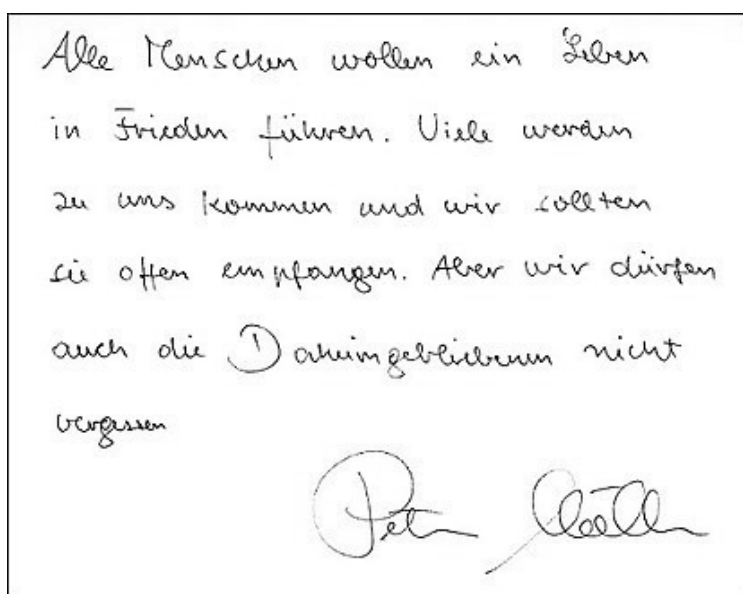 Alle Menschen wollen ein Leben
in Frieden führen. Viele werden
zu uns kommen und wir sollten
sie offen empfangen. Aber wir dürfen
auch die Daheimgebliebenen nicht
vergessen
Peter